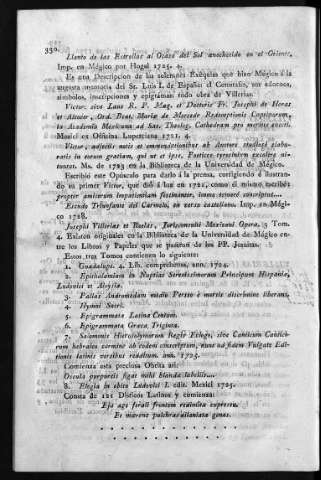 330.
Llanto de las Estrellas al Ocaso del Sol anochecido en el Oriente.
Imp. en Mégico por Hogal 1725. 4.
Es una Descripcion de las solemnes Exêquias que hizo Mégico á la
augusta memoria del Sr. Luis I. de España: el Cenotafio, sus adornos,
símbolos, inscripciones y epigramas todo obra de Villerías.
Victor: sive Laus R. P. Mag. et Doctoris Fr. Josephi de Heras
et Alcocer, Ord. Beat. Mariæ de Mercede Redemptionis Captivorum,
in Academia Mexicana ad Sac. Theolog. Cathedram pro meritis evecti.
Mexici ex Officina Lupertiana 1721. 4.
Victor, adjectis notis et emmendationibus ab Auctore studiosè elabo-
ratis in eorum gratiam, qui ut et ipse, Poeticæ tyrocinium excolere ni-
tuntur. Ms. de 1723 en la Biblioteca de la Universidad de México.
Escribió este Opúsculo para darlo á la prensa, corrigiendo é ilustran-
do su primer Victor, que dió á luz en 1721, como él mismo escribe:
propter amicorum impatientiam festinanter, immo temerè conscriptus...
Escudo Triunfante del Carmelo, en verso castellano. Imp. en Mégi-
co 1728.
Josephi Villerias et Roelas, Jurisconsulti Mexicani Opera. 3 Tom.
4. Existen originales en la Biblioteca de la Universidad de Mégico en-
tre los Libros y Papeles que se juntaron de los PP. Jesuitas.
Estos tres Tomos contienen lo siguiente:
1. Guadalupe. 4. Lib. comprehensa, ann. 1724.
2. Epithalamium in Nuptias Serenissimorum Principum Hispaniæ,
Ludovici et Aloysiæ.
3. Pallas Andromedam nudis Perseo è mortis discrimine liberans.
4. Hymni Sacri.
5. Epigrammata Latina Centum.
6. Epigrammata Græca, Triginta.
7. Salomonis Hierosolymorum Regis Eclogæ, sive Canticum Cantico-
rum hebraico carmine ab eodem conscriptum, nunc ad fidem Vulgatæ Edi-
tionis latinis versibus redditum. ann. 1725.
Comienza esta preciosa Obrita así:
Oscula purpureis figat mihi blanda labellis...
8. Elegia in obitu Ludovici I. edit. Mexici 1725.
Consta de 121 Dísticos Latinos y comienza:
Eja age ferali frontem resoluta cupresso,
Et marens pulchras dilaniata genas.